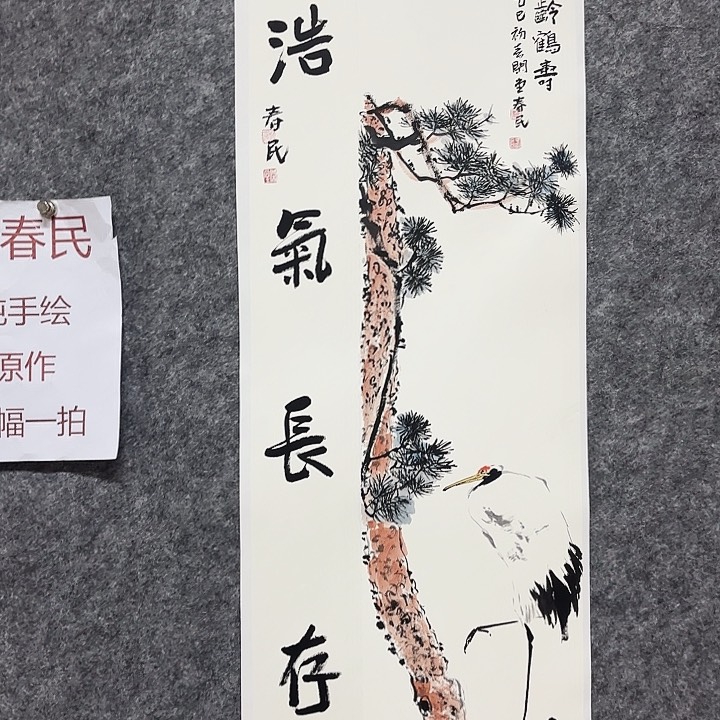 浩氣長存
春民
齡鶴壽
巳初春開墨春民
春民
纯手绘
原作
幅一拍